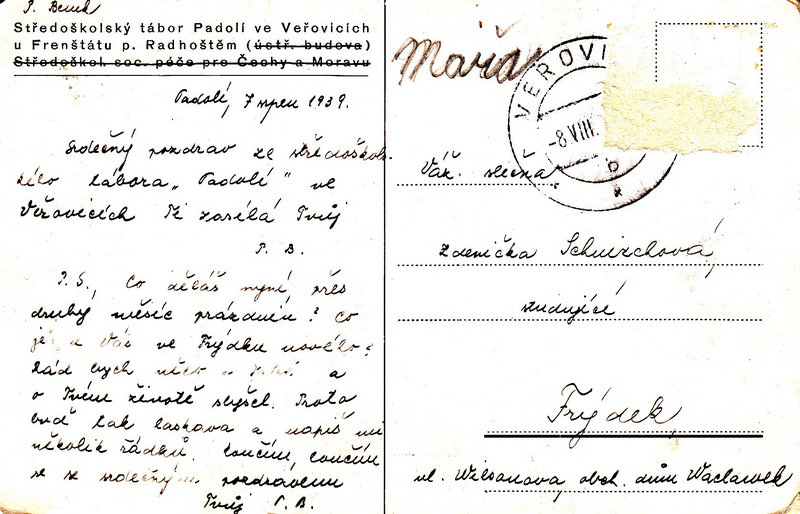 P. Benek
Středoškolský tábor Padolí ve Veřovicích
u Frenštátu p. Radhoštěm (ústř. budova)
Středoškol. soc. péče pro Čechy a Moravu
Padolí, 7 srpen 1939.
Srdečný pozdrav ze středoškol-
ského tábora „Padolí" ve
Veřovicích Ti zasílá Tvůj
P. B.
P. S., Co děláš nyní, přes
druhý měsíc prázdnin? Co
je u Vás ve Frýdku nového?
Rád bych něco o a
o Tvém životě slyšel. Proto
buď tak laskava a napiš mi
několik řádků. Loučím, loučím
se se srdečným pozdravem
Tvůj P. B.
Máňa
VEROVI
-8.VIII.
Váž. slečna
Zdenička
studující
Frýdek,
ul. Wilsonova, obch. dům Waclawek